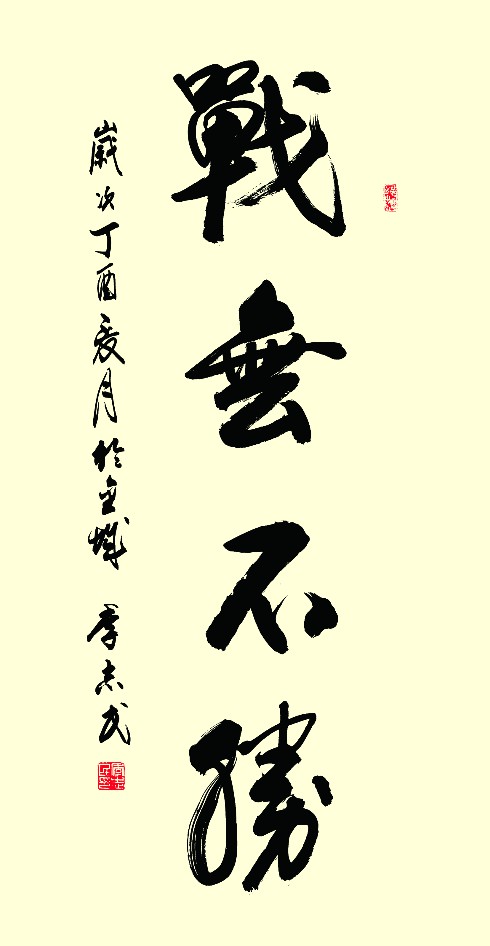 戰無不勝
歲次丁酉夏月於金城 李志武